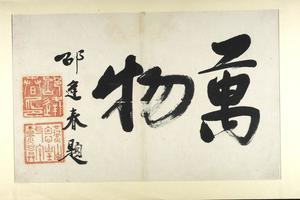 萬物
邵逢春題